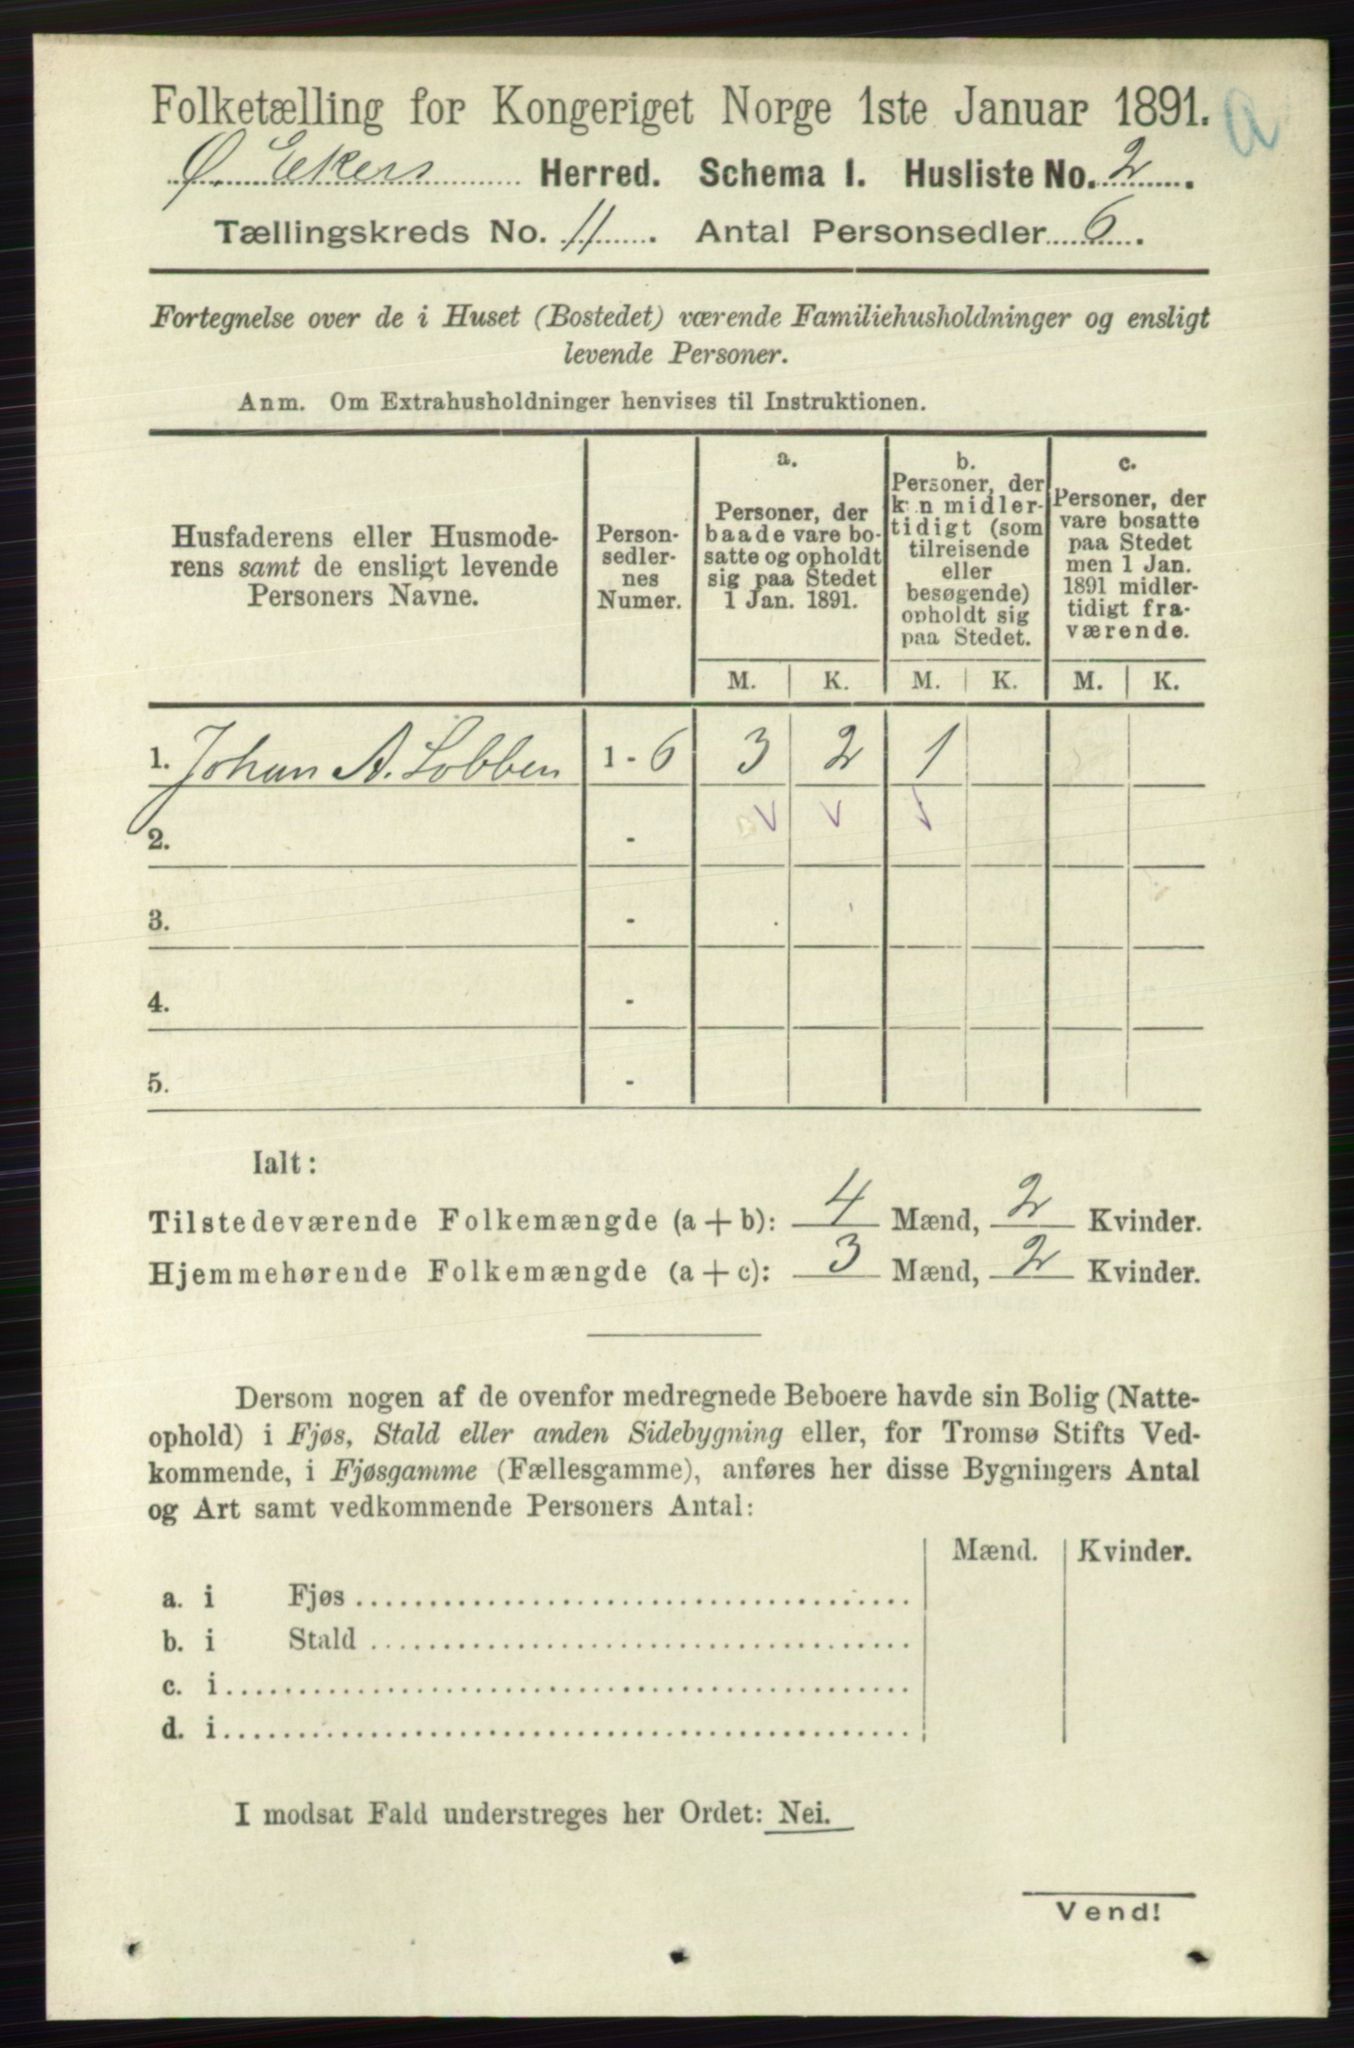 Folketælling for Kongeriget Norge 1ste Januar 1891. a
Ø. Ekers Herred. Schema 1. Husliste No. 2.
Tællingskreds No. 11. Antal Personsedler 6.
Fortegnelse over de i Huset (Bostedet) værende Familiehusholdninger og ensligt
levende Personer.
Anm. Om Extrahusholdninger henvises til Instruktionen.
Husfaderens eller Husmode-
rens samt de ensligt levende
Personers Navne.
Person-
sedler-
nes
Numer.
a.
Personer, der
baade vare bo-
satte og opholdt
sig paa Stedet
1 Jan. 1891.
M. K.
b.
Personer, der
kun midler-
tidigt (som
tilreisende
eller
besøgende)
opholdt sig
paa Stedet.
M. K.
c.
Personer, der
vare bosatte
paa Stedet
men 1 Jan.
1891 midler-
tidigt fra-
værende.
M. K.
1. Johan A. Lobben 1 - 6 3 2 1
2. -
3. -
4. -
5. -
Ialt:
Tilstedeværende Folkemængde (a + b): 4 Mænd, 2 Kvinder.
Hjemmehørende Folkemængde (a + c): 3 Mænd, 2 Kvinder.
Dersom nogen af de ovenfor medregnede Beboere havde sin Bolig (Natte-
ophold) i Fjøs, Stald eller anden Sidebygning eller, for Tromsø Stifts Ved-
kommende, i Fjøsgamme (Fællesgamme), anføres her disse Bygningers Antal
og Art samt vedkommende Personers Antal:
Mænd. Kvinder.
a. i Fjøs
b. i Stald
c. i
d. i
I modsat Fald understreges her Ordet: Nei.
Vend!